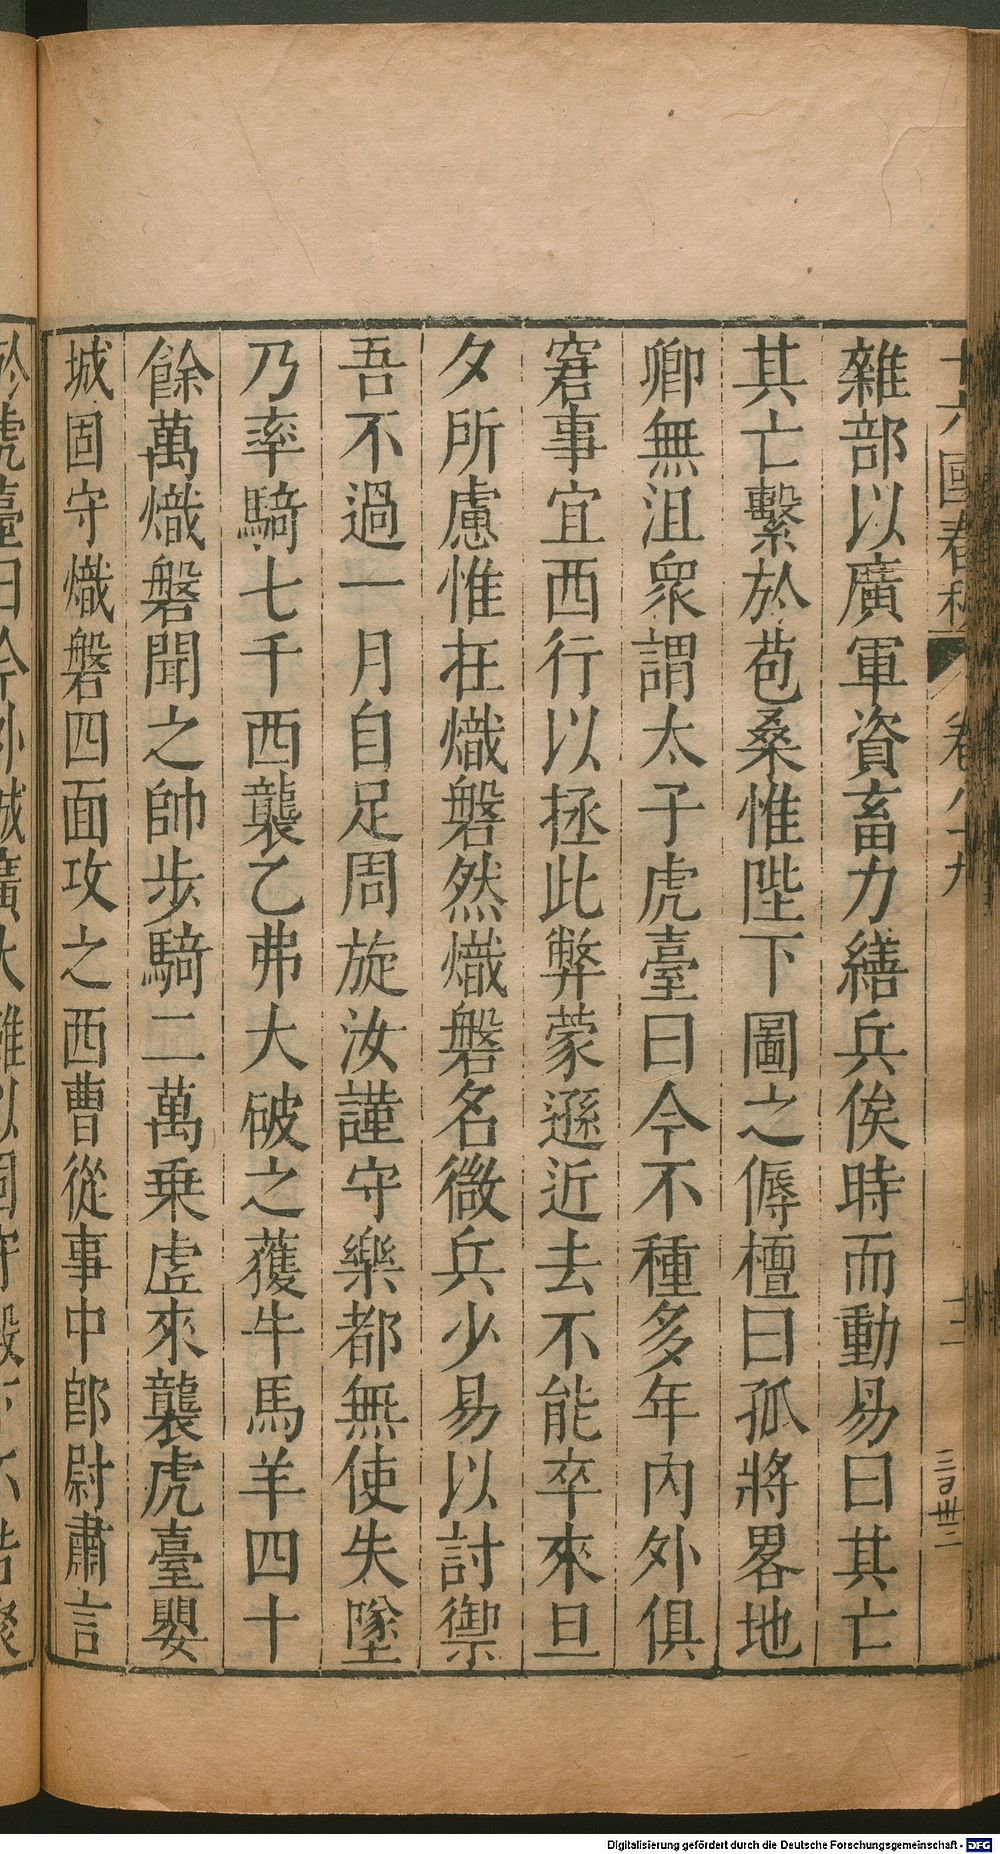 十六國春秋 卷八十九 十二
雜部以廣軍資畜力繕兵俟時而動易曰其亡
其亡繫於苞桑惟陛下圖之傉檀曰孤將畧地
卿無沮衆謂太子虎臺曰今不種多年內外俱
窘事宜西行以拯此弊蒙遜近去不能卒來旦
夕所慮惟在熾磐然熾磐名微兵少易以討禦
吾不過一月自足周旋汝謹守樂都無使失墜
乃率騎七千西襲乙弗大破之獲牛馬羊四十
餘萬熾磐聞之帥步騎二萬乗虛來襲虎臺嬰
城固守熾磐四面攻之西曹從事中郎尉肅言
於虎臺曰今外城廣大難以固守殿下
Digitalisierung gefördert durch die Deutsche Forschungsgemeinschaft - DFG